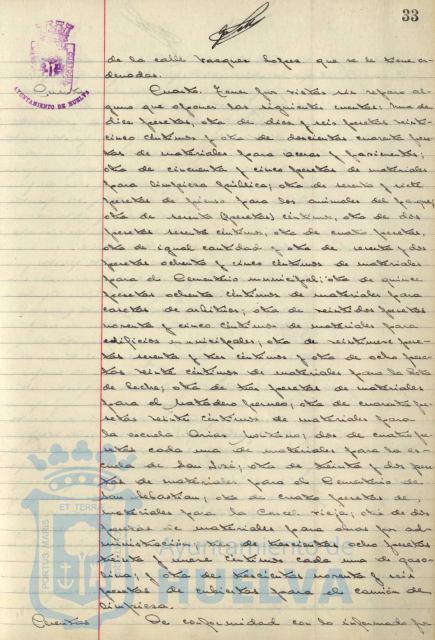 33
AYUNTAMIENTO DE HUELVA
de la calle Vazquez Lopez que se le tiene or-
denadas.
Cuentas
Cuarto. Tener por vistas sin reparo al-
guno que oponer las siguientes cuentas: Una de
diez pesetas, otra de diez y seis pesetas veinti-
cinco céntimos y otra de doscientas cuarenta pese-
tas de materiales para aceras y pavimentos;
otra de cincuenta y cinco pesetas de materiales
para limpieza pública; otra de sesenta y siete
pesetas de pienso para los animales del parque;
otra de sesenta (pesetas) céntimos, otra de dos
pesetas sesenta céntimos, otra de cuatro pesetas,
otra de igual cantidad y otra de sesenta y dos
pesetas ochenta y cinco céntimos de materiales
para el Cementerio municipal; otra de quince
pesetas ochenta céntimos de materiales para
casetas de arbitrios; otra de veintidos pesetas
noventa y cinco céntimos de materiales para
edificios municipales; otra de veintinueve pese-
tas sesenta y tres céntimos y otra de ocho pese-
tas veinte céntimos de materiales para la Gota
de leche; otra de tres pesetas de materiales
para el Matadero porcuno; otra de cuarenta pe-
setas veinte céntimos de materiales para
la escuela Arias Montano; dos de cuatro pe-
setas cada una de materiales para la es-
cuela de San José; otra de treinta y dos pese-
tas de materiales para el Cementerio de
San Sebastian; otra de cuatro pesetas de
materiales para la Carcel vieja; otra de dos
pesetas de materiales para obras por ad-
ministración; tres de trescientas ocho pesetas
treinta y nueve céntimos cada una de gaso-
lina; y otra de trescientas noventa y seis
pesetas de cubiertas para el camión de
limpieza.
De conformidad con lo informado por
PORTUS MARIS ET TERRAE
Ayuntamiento de
HUELVA